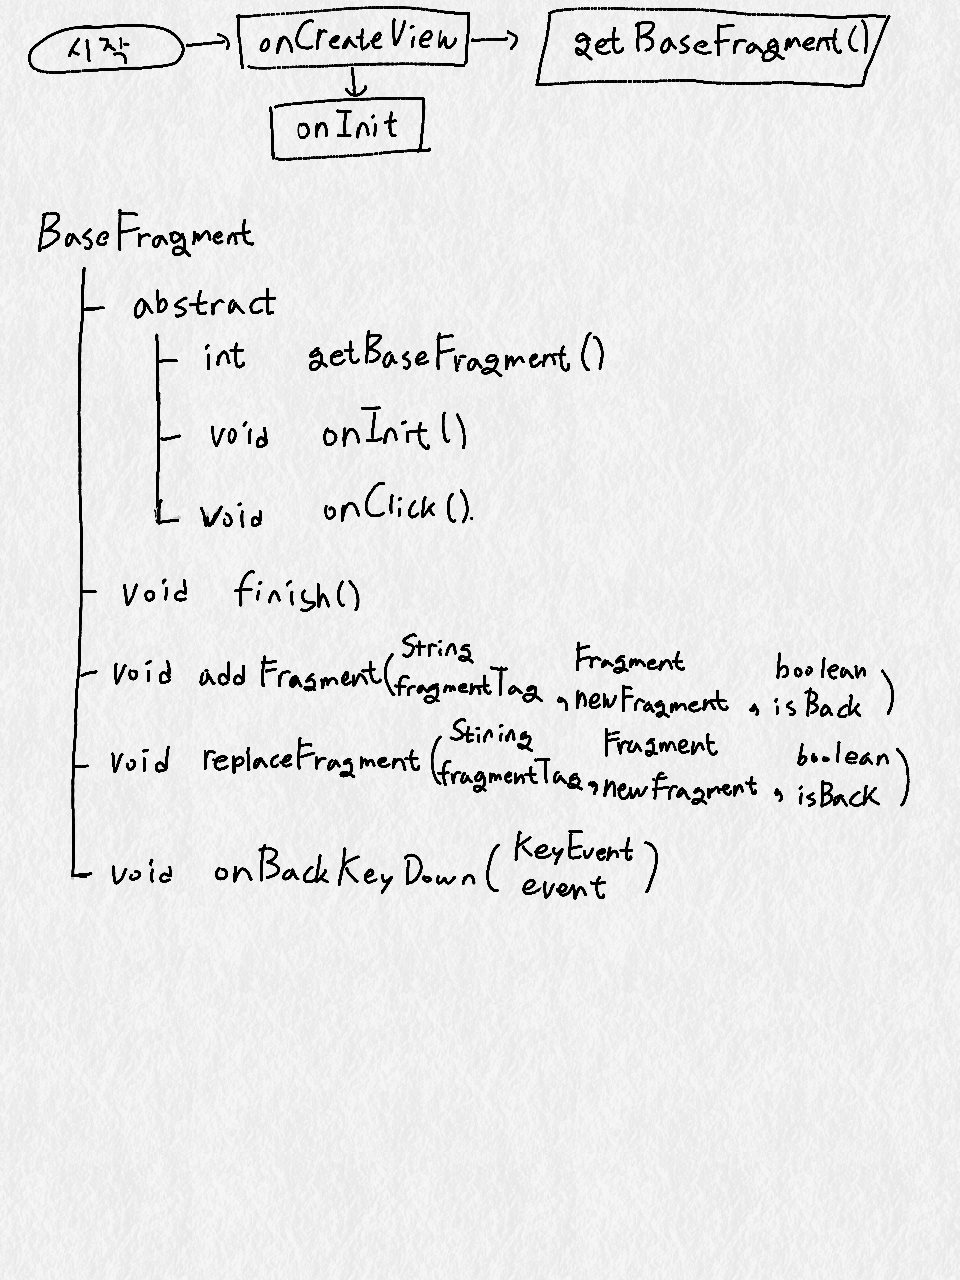 시작 onCreateView getBaseFragment()
onInit
BaseFragment
abstract
int getBaseFragment()
void onInit()
void onClick().
void finish()
void addFragment(String fragmentTag, Fragment newFragment, boolean isBack)
void replaceFragment(Stiring fragmentTag, Fragment newFragment, boolean isBack)
void onBackKeyDown(KeyEvent event)